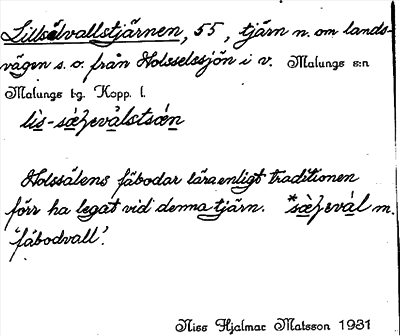 Lillsälvallstjärnen, 55, tjärn n. om lands-
vägen s.o. från Holsselssjön i v. Malungs s:n
Malungs t-g. Kopp. l.
Holssälens fäbodar lära enligt traditionen
förr ha legat vid denna tjärn.
'fäbodvall'.
Niss Hjalmar Matsson 1931